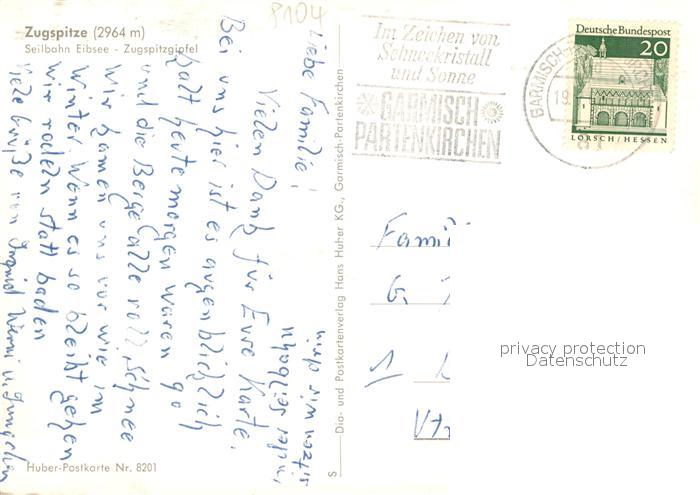 8104
Zugspitze (2964 m)
Seilbahn Eibsee - Zugspitzgipfel
Liebe Familie!
Vielen Dank für Eure Karte.
Bei uns hier ist es augenblicklich
kalt heute morgen waren 90
und die Berge alle voll Schnee
Wir kamen uns vor wie im
Winter Wenn es so bleibt gehen
wir rodeln statt baden
Viele Grüße von Ingrid
sitzen wir drin
Huber-Postkarte Nr. 8201
S Dia- und Postkartenverlag Hans Huber KG., Garmisch-Partenkirchen
Im Zeichen von
Schneekristall
und Sonne
GARMISCH
PARTENKIRCHEN
GARMISCH-
19.
81
Deutsche Bundespost
20
LORSCH/HESSEN
Famil
G
1
privacy protection
Datenschutz